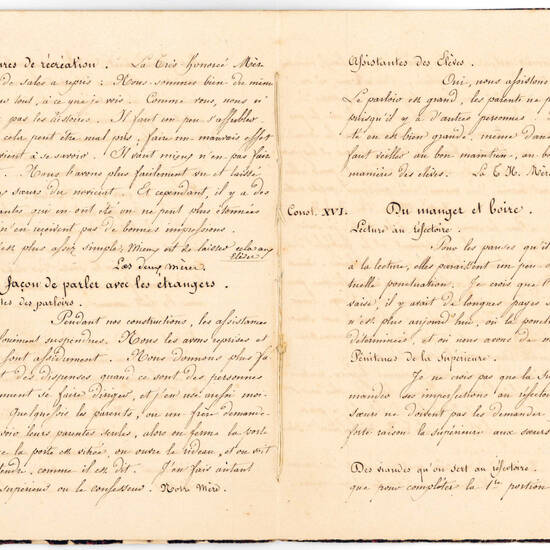 ures de récréation. La Très honorée Mèr
de sales a repris : Nous sommes bien du même
ou tout, à ce que je vois. Comme vous, nous n'
pas les dessins. Il faut un peu s'affubler
cela peut être mal pris ; faire un mauvais effet
vient à se savoir. Il vaut mieux n'en pas fair
Nous l'avons plus facilement vu et laissé
sœurs du noviciat. Et cependant, il y a des
antes qui en ont été on ne peut plus étonnées
n'en reçoivent pas de bonnes impressions.
est plus assez simple. Mieux vit de laisser cela aux
élèves
Les deux Mères.
façon de parler avec les étrangers.
tes des parloirs.
Pendant nos constructions, les assistances
forcément suspendues. Nous les avons reprises et
font assidument. Nous donnons plus fa
t des dispenses quand ce sont des personnes
ennent se faire diriger, et j'en use aussi moi-
Quelquefois les parents, ou un frère demande
voir leurs parentes seules, alors on ferme la porte
la porte est vitrée, on ouvre le rideau, et on voit
tendre, comme il est dit. J'en fais autant
supérieur ou le confesseur. Notre Mère.
Assistantes des Elèves.
Oui, nous assistons
Le parloir est grand, les parents ne p
puisqu'il y a d'autres personnes !
té en est bien grande, même dan
faut veiller au bon maintien, au bo
manières des élèves. La T. H. Mère
Const. XVI. Du manger et boire.
Lecture au réfectoire.
Sous les pauses qu'il
à la lecture, elles paraissent un peu
tuelle ponctuation. Je crois que l'
vaise, il y avait de longues pauses
n'est plus aujourd'hui, où la ponct
déterminées, et où nous avons de m
Pénitences de la Supérieure.
Je ne crois pas que la Su
mander ses imperfections au réfectoir
sœurs ne doivent pas les demander
forte raison la supérieure aux sœurs
Des viandes qu'on sert au réfectoire.
que pour compléter la 1re portion